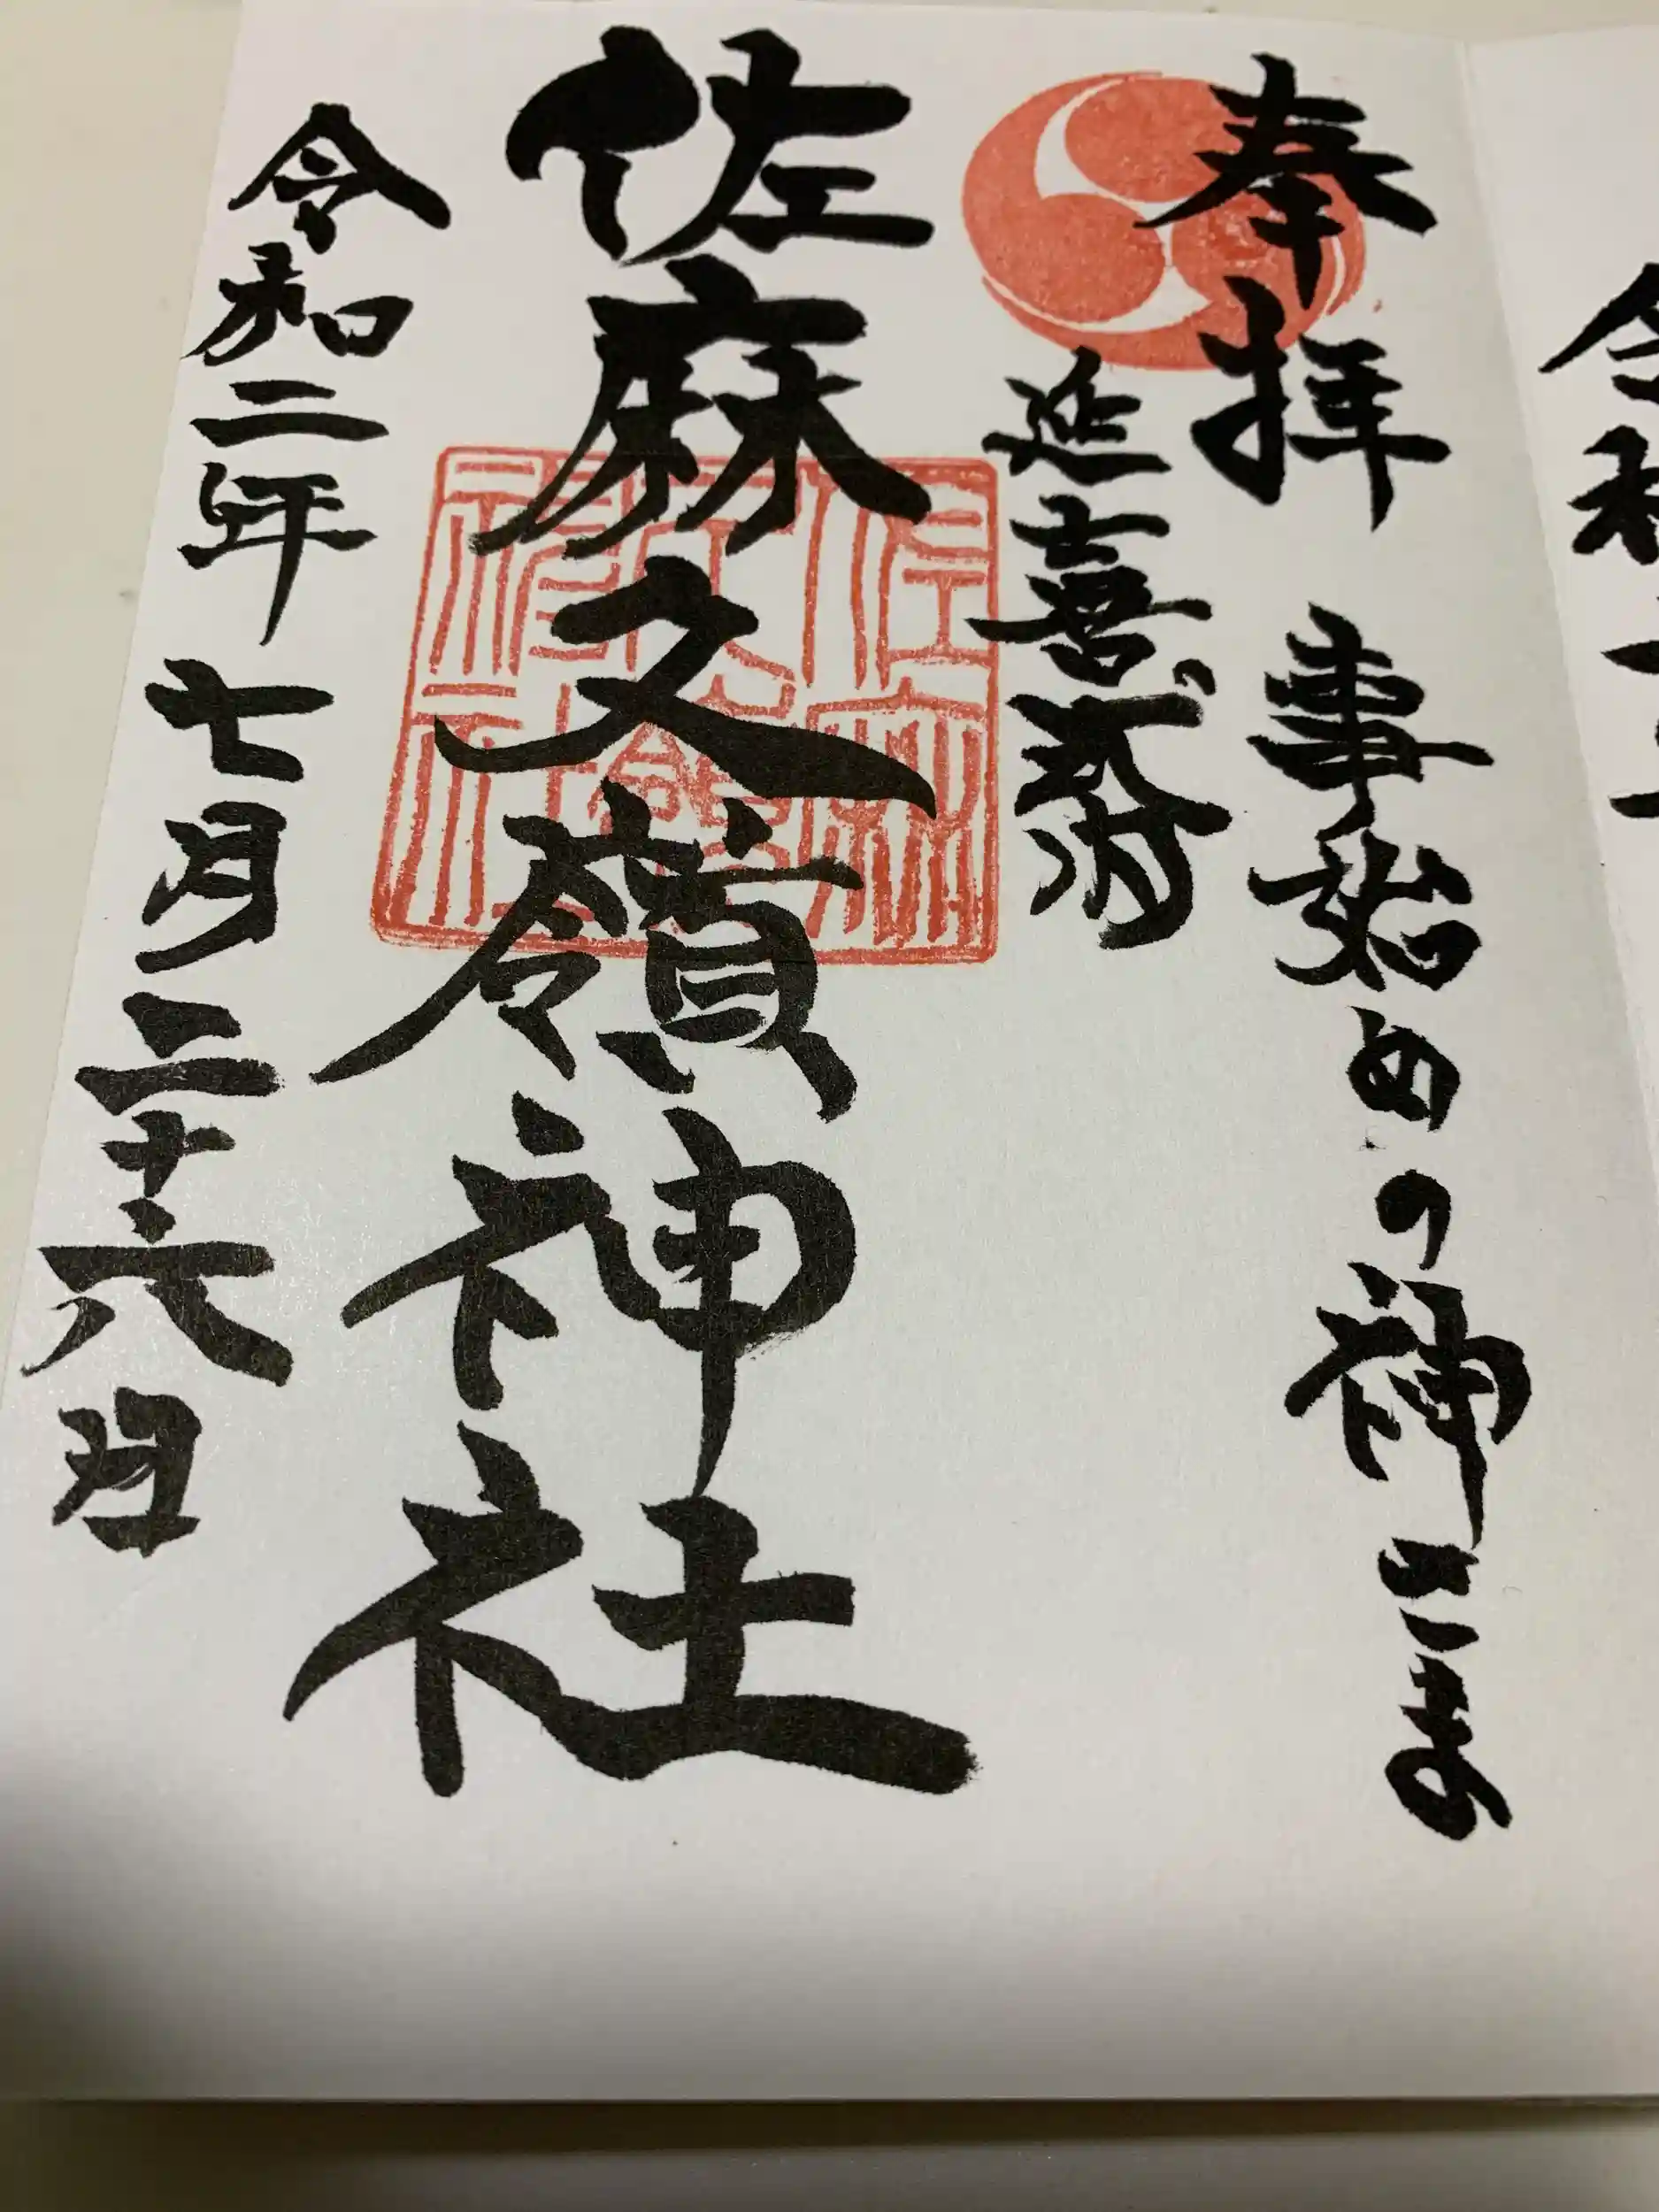 令和
奉拝 事始めの神さま
延喜式内
佐麻久嶺神社
令和二年七月二十六日